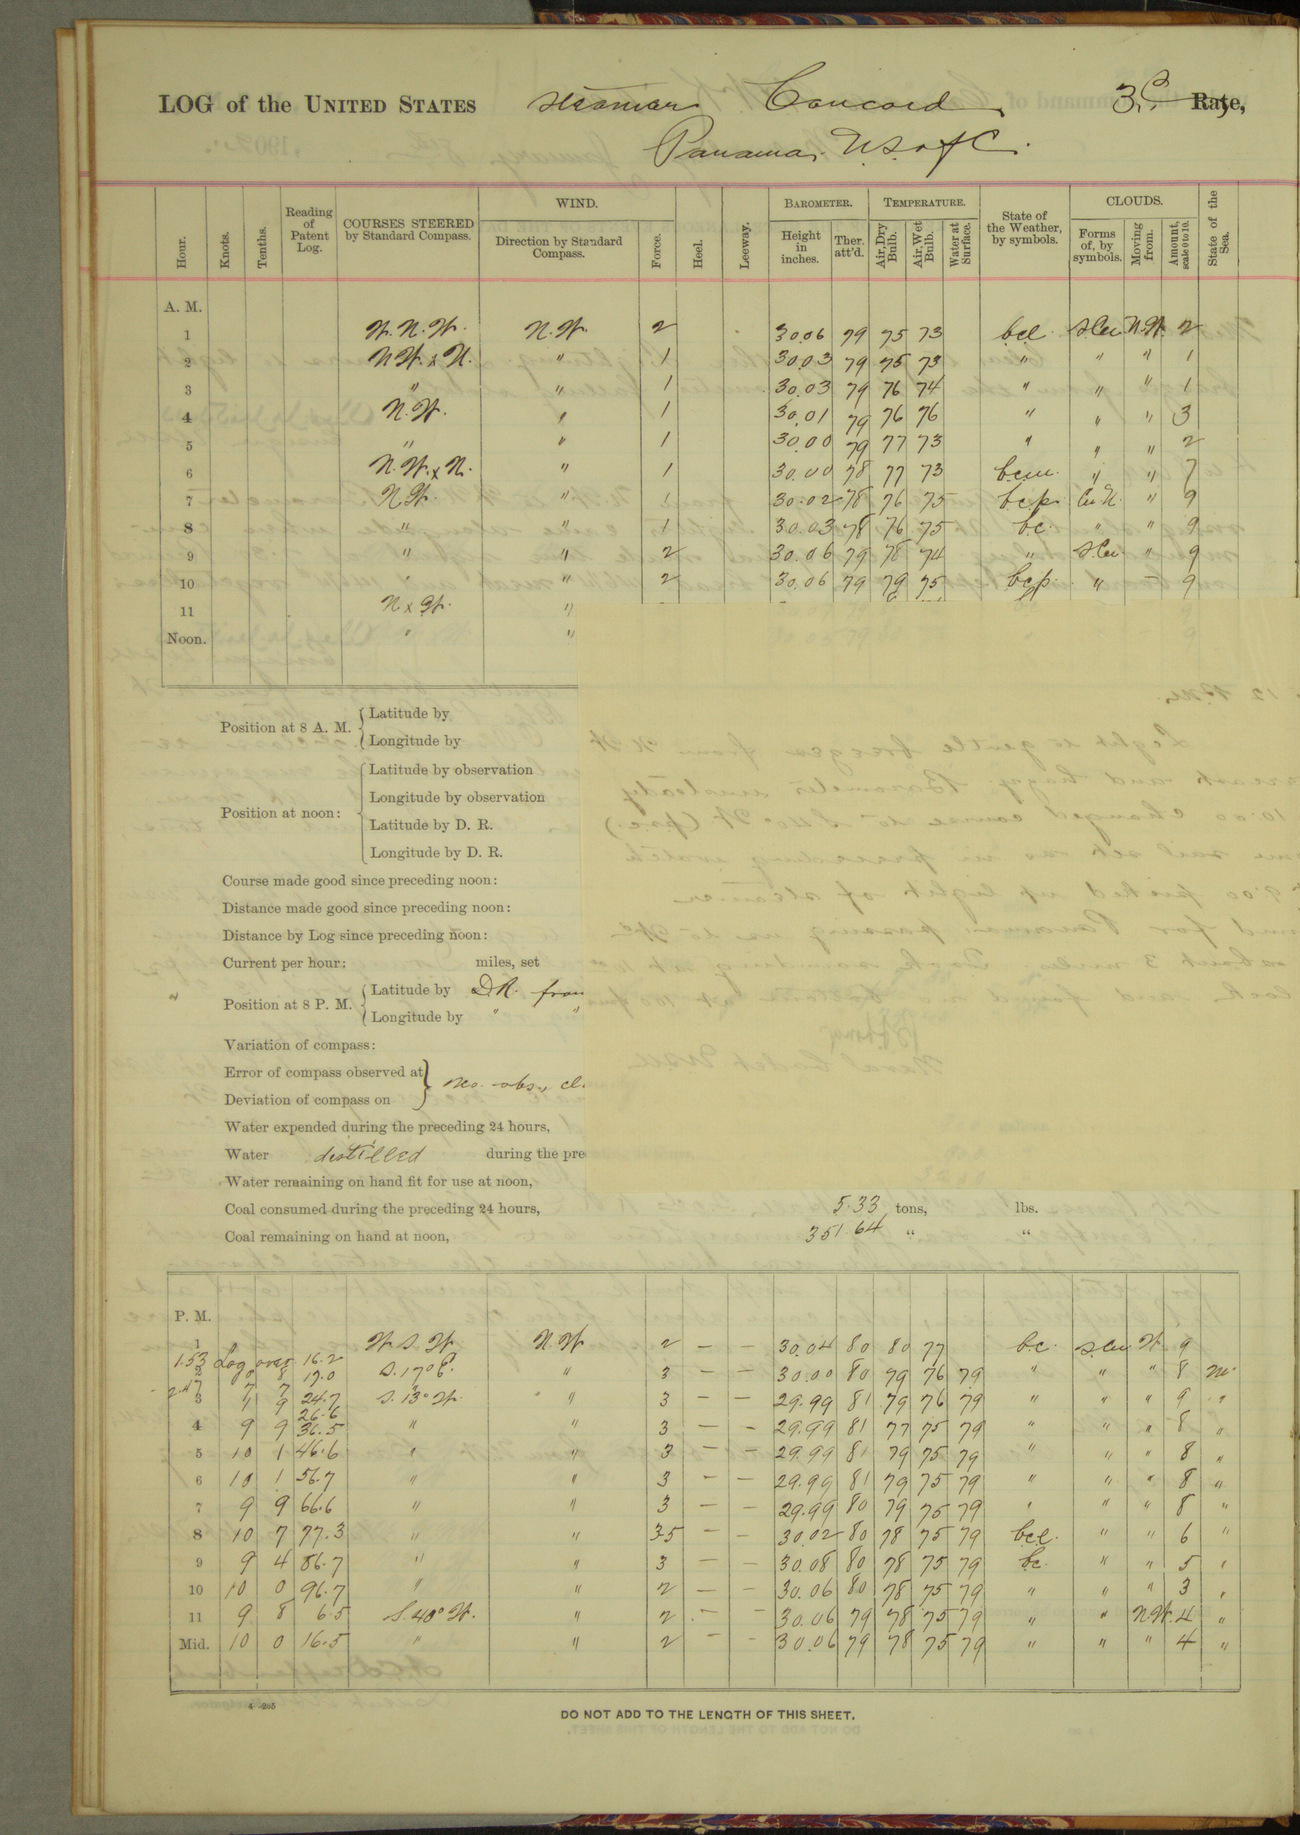 LOG of the UNITED STATES Steamer Concord, 3d Rate,
Panama, U.S. of C.
Hour. Knots. Tenths. Reading of Patent Log. COURSES STEERED by Standard Compass. WIND. Direction by Standard Compass. Force. Heel. Leeway. BAROMETER. Height in inches. Ther. att'd. TEMPERATURE. Air, Dry Bulb. Air, Wet Bulb. Water at Surface. State of the Weather, by symbols. CLOUDS. Forms of, by symbols. Moving from. Amount, scale 0 to 10. State of the Sea.
A. M.
1 W.N.W. N.W. 2 30.06 79 75 73 bcl. S.Cu N.W. 2
2 N.W. x N. " 1 30.03 79 75 73 " " " 1
3 " " 1 30.03 79 76 74 " " " 1
4 N.W. " 1 30.01 79 76 76 " " " 3
5 " " 1 30.00 79 77 73 " " " 2
6 N.W. x N. " 1 30.00 78 77 73 bcm. " " 7
7 N.W. " 1 30.02 78 76 75 bcp. Cu N. " 9
8 " " 1 30.03 78 76 75 bc. " " 9
9 " " 2 30.06 79 78 74 " S.Cu " 9
10 " " 2 30.06 79 79 75 bcp. " – 9
11 N x W. "
Noon. " "
Position at 8 A. M. Latitude by
Longitude by
Position at noon: Latitude by observation
Longitude by observation
Latitude by D. R.
Longitude by D. R.
Course made good since preceding noon:
Distance made good since preceding noon:
Distance by Log since preceding noon:
Current per hour: miles, set
Position at 8 P. M. Latitude by D.R. from
Longitude by " "
Variation of compass:
Error of compass observed at
Deviation of compass on no. obs.,
Water expended during the preceding 24 hours,
Water distilled during the pre
Water remaining on hand fit for use at noon,
Coal consumed during the preceding 24 hours, 5.33 tons, lbs.
Coal remaining on hand at noon, 351.64 " "
P. M.
1 W.S.W. N.W. 2 – – 30.04 80 80 77 bc. S.Cu W. 9
1.53 Log over 16.2
2 8 17.0 S. 17° E. " 3 – – 30.00 80 79 76 79 " " " 8 m.
2.47 7 7
3 9 24.7 S. 13° W. " 3 – – 29.99 81 79 76 79 " " " 9 "
26.6
4 9 9 36.5 " " 3 – – 29.99 81 77 75 79 " " " 8 "
5 10 1 46.6 " " 3 – – 29.99 81 79 75 79 " " " 8 "
6 10 1 56.7 " " 3 – – 29.99 81 79 75 79 " " " 8 "
7 9 9 66.6 " " 3 – – 29.99 80 79 75 79 " " " 8 "
8 10 7 77.3 " " 3-5 – – 30.02 80 78 75 79 bcl. " " 6 "
9 9 4 86.7 " " 3 – – 30.08 80 78 75 79 bc. " " 5 "
10 10 0 96.7 " " 2 – – 30.06 80 78 75 79 " " " 3 "
11 9 8 6.5 S. 40° W. " 2 – – 30.06 79 78 75 79 " " N.W. 4 "
Mid. 10 0 16.5 " " 2 – – 30.06 79 78 75 79 " " " 4 "
4—265
DO NOT ADD TO THE LENGTH OF THIS SHEET.